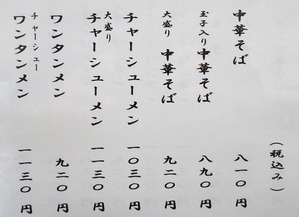 (税込み)
中華そば 八一〇円
玉子入り中華そば 八九〇円
大盛り中華そば 九二〇円
チャーシューメン 一〇三〇円
大盛りチャーシューメン 一一三〇円
ワンタンメン 九二〇円
チャーシューワンタンメン 一一三〇円